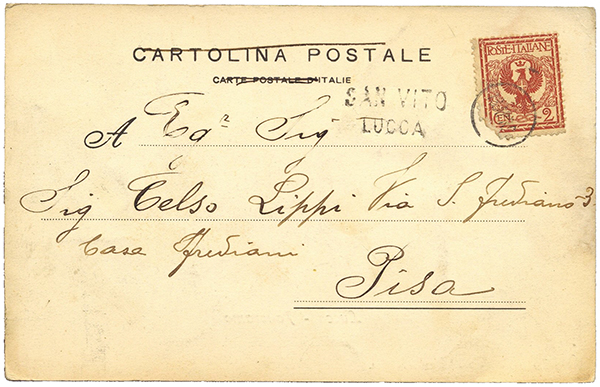 CARTOLINA POSTALE
CARTE POSTALE D'ITALIE
POSTE·ITALIANE
CEN. 2
SAN VITO
LUCCA
A Eg.r Sig
Sig Celso Lippi Via S. Frediano 3.
Casa Frediani
Pisa